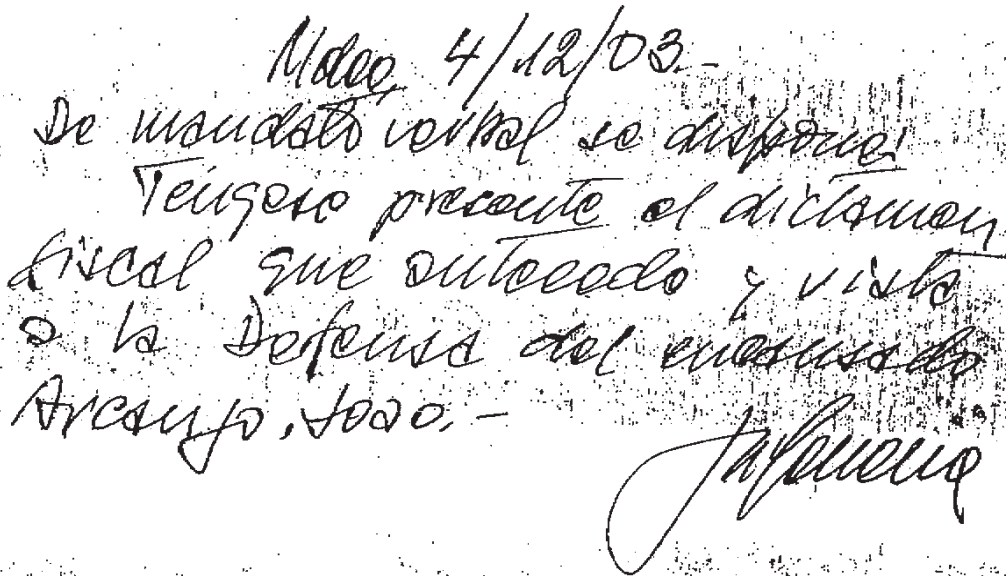 Mdeo, 4/12/03.-
De mandato verbal se dispone:
Téngase presente el dictamen
fiscal que antecede y vista
a la Defensa del encausado
Arcanjo, Joao.-